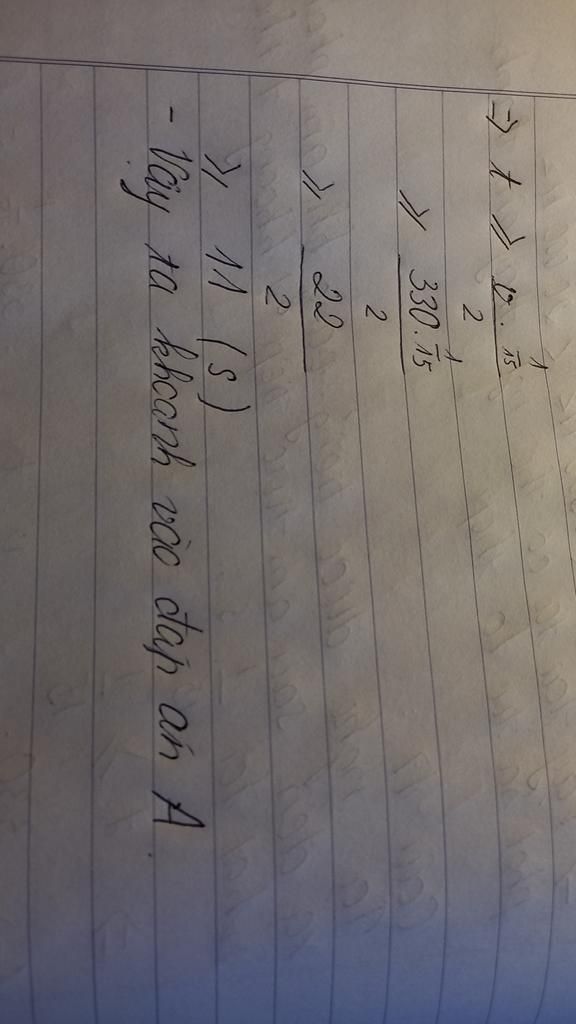 => t ≥ v . 1/15 / 2
≥ 330 . 1/15 / 2
≥ 22 / 2
≥ 11 (s)
- Vậy ta khoanh vào đáp án A